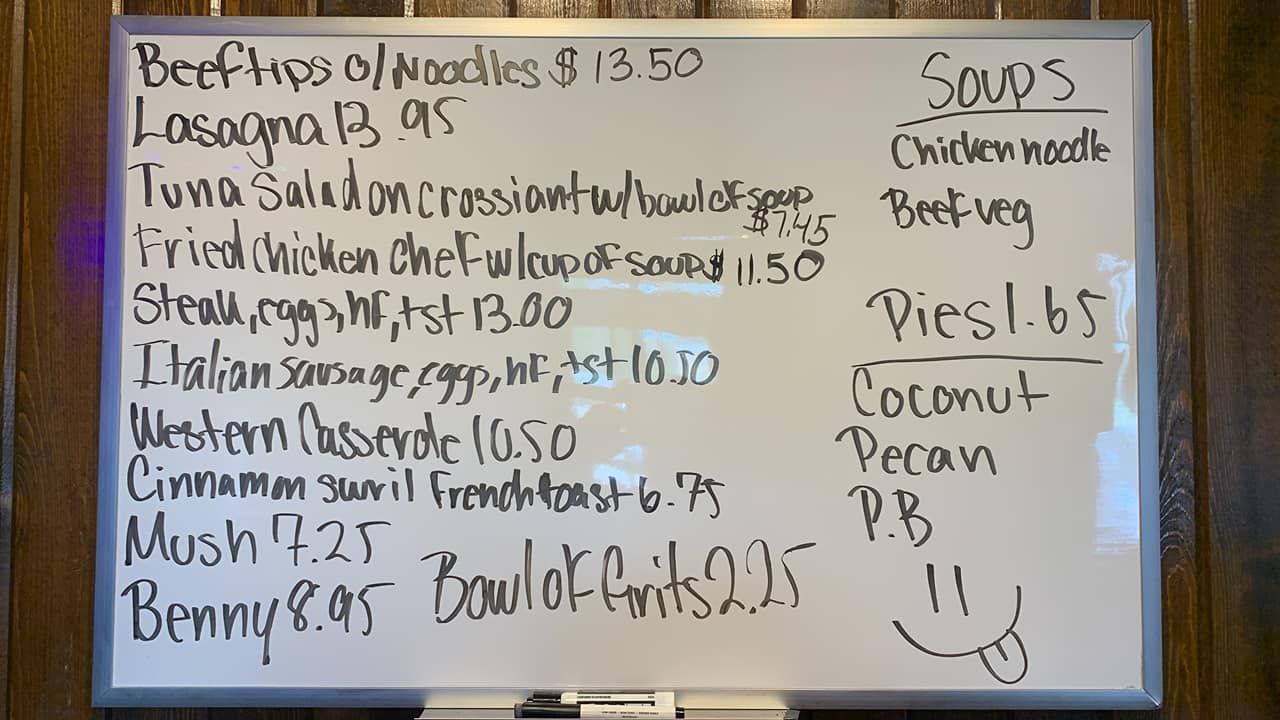 Beef tips o/Noodles $ 13.50
Lasagna 13.95
Tuna Salad on crossiant w/bowl of soup
$7.45
Fried chicken chef w/cup of soup $ 11.50
Steak, eggs, hf, tst 13.00
Italian sausage, eggs, hf, tst 10.50
Western Casserole 10.50
Cinnamon swril French toast 6.75
Mush 7.25
Benny 8.95
Bowl of Grits 2.25
Soups
Chicken noodle
Beef veg
Pies 1.65
Coconut
Pecan
P.B